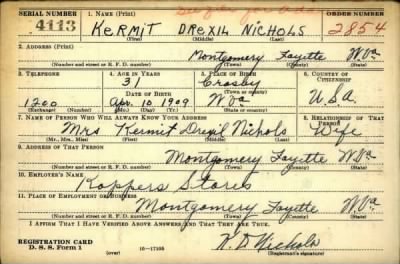 SERIAL NUMBER 1. NAME (Print) ORDER NUMBER
4113 KERMIT DREXIL NICHOLS 2854
(First) (Middle) (Last)
2. ADDRESS (Print)
Montgomery Fayette W.Va
(Number and street or R. F. D. number) (Town) (County) (State)
3. TELEPHONE 4. AGE IN YEARS 5. PLACE OF BIRTH 6. COUNTRY OF CITIZENSHIP
31 Crosby
DATE OF BIRTH
1200 Apr. 10 1909 W Va U.S.A.
(Exchange) (Number) (Mo.) (Day) (Yr.) (State or country)
7. NAME OF PERSON WHO WILL ALWAYS KNOW YOUR ADDRESS 8. RELATIONSHIP OF THAT PERSON
Mrs Kermit Drexil Nichols Wife
(Mr., Mrs., Miss) (First) (Middle) (Last)
9. ADDRESS OF THAT PERSON
Montgomery Fayette W.Va
(Number and street or R. F. D. number) (Town) (County) (State)
10. EMPLOYER'S NAME
Koppers Stores
11. PLACE OF EMPLOYMENT OR BUSINESS
Montgomery Fayette W.Va
(Number and street or R. F. D. number) (Town) (County) (State)
I AFFIRM THAT I HAVE VERIFIED ABOVE ANSWERS AND THAT THEY ARE TRUE.
REGISTRATION CARD
D. S. S. Form 1 16—17105 K. D. Nichols
(over) (Registrant's signature)